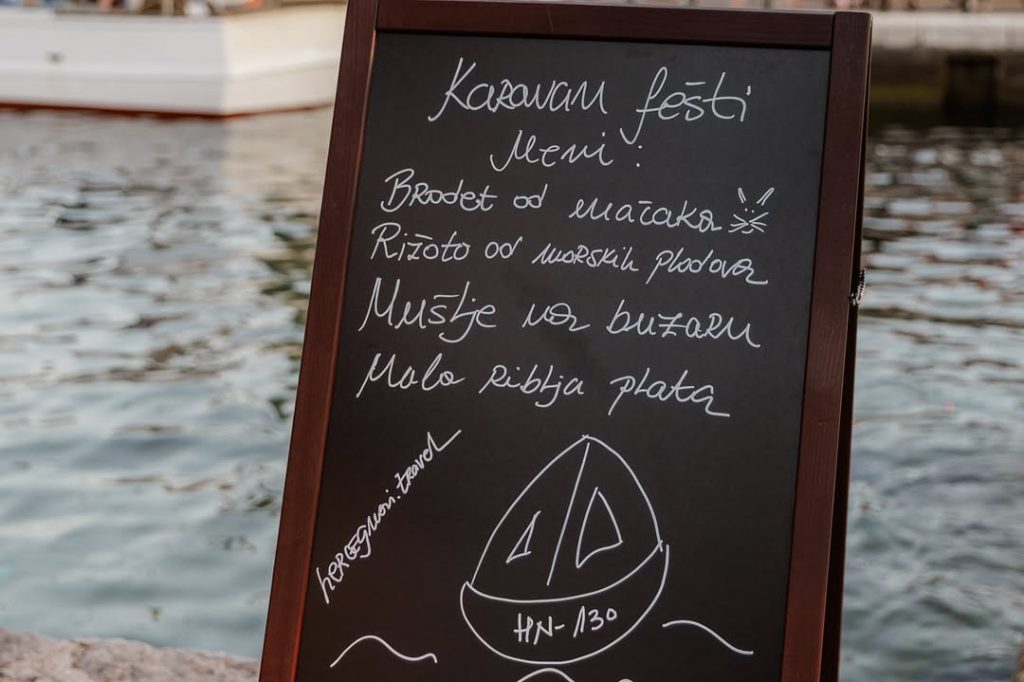 Karavan fešti
Meni:
Brodet od mačaka
Rižoto od morskih plodova
Mušlje na buzaru
Mala riblja plata
hercegnovi.travel
HN-130